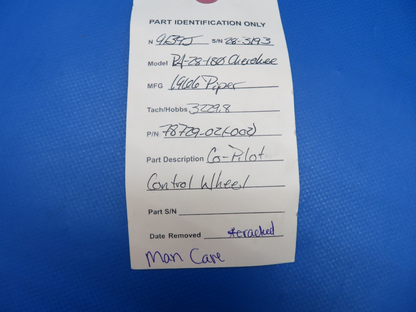 PART IDENTIFICATION ONLY
N 9639J S/N 28-3193
Model PA-28-180 Cherokee
MFG 1966 Piper
Tach/Hobbs 3229.8
P/N 78729-02(-002)
Part Description Co-Pilot
Control Wheel
Part S/N
Date Removed *cracked
Man Care